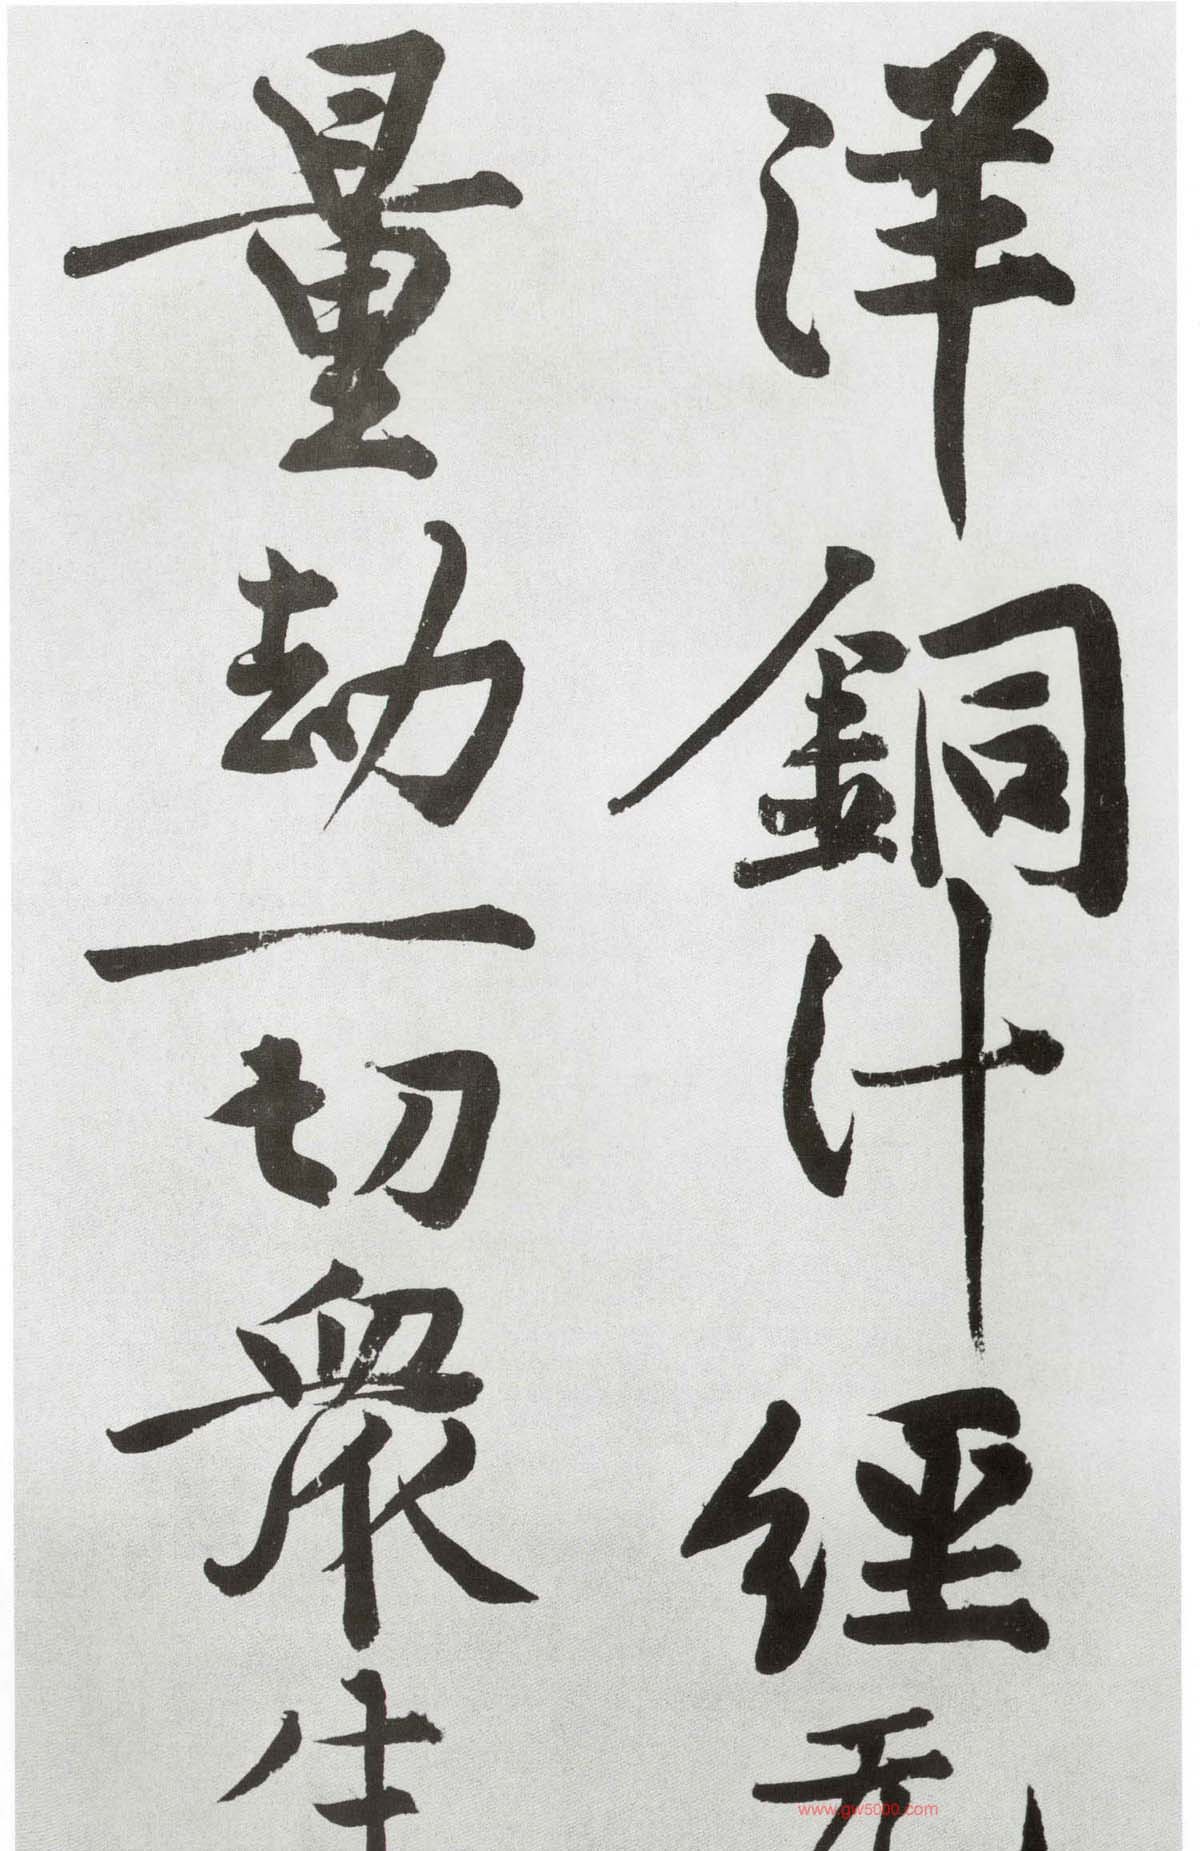 洋銅汁經无
量劫一切衆生
www.gw5000.com